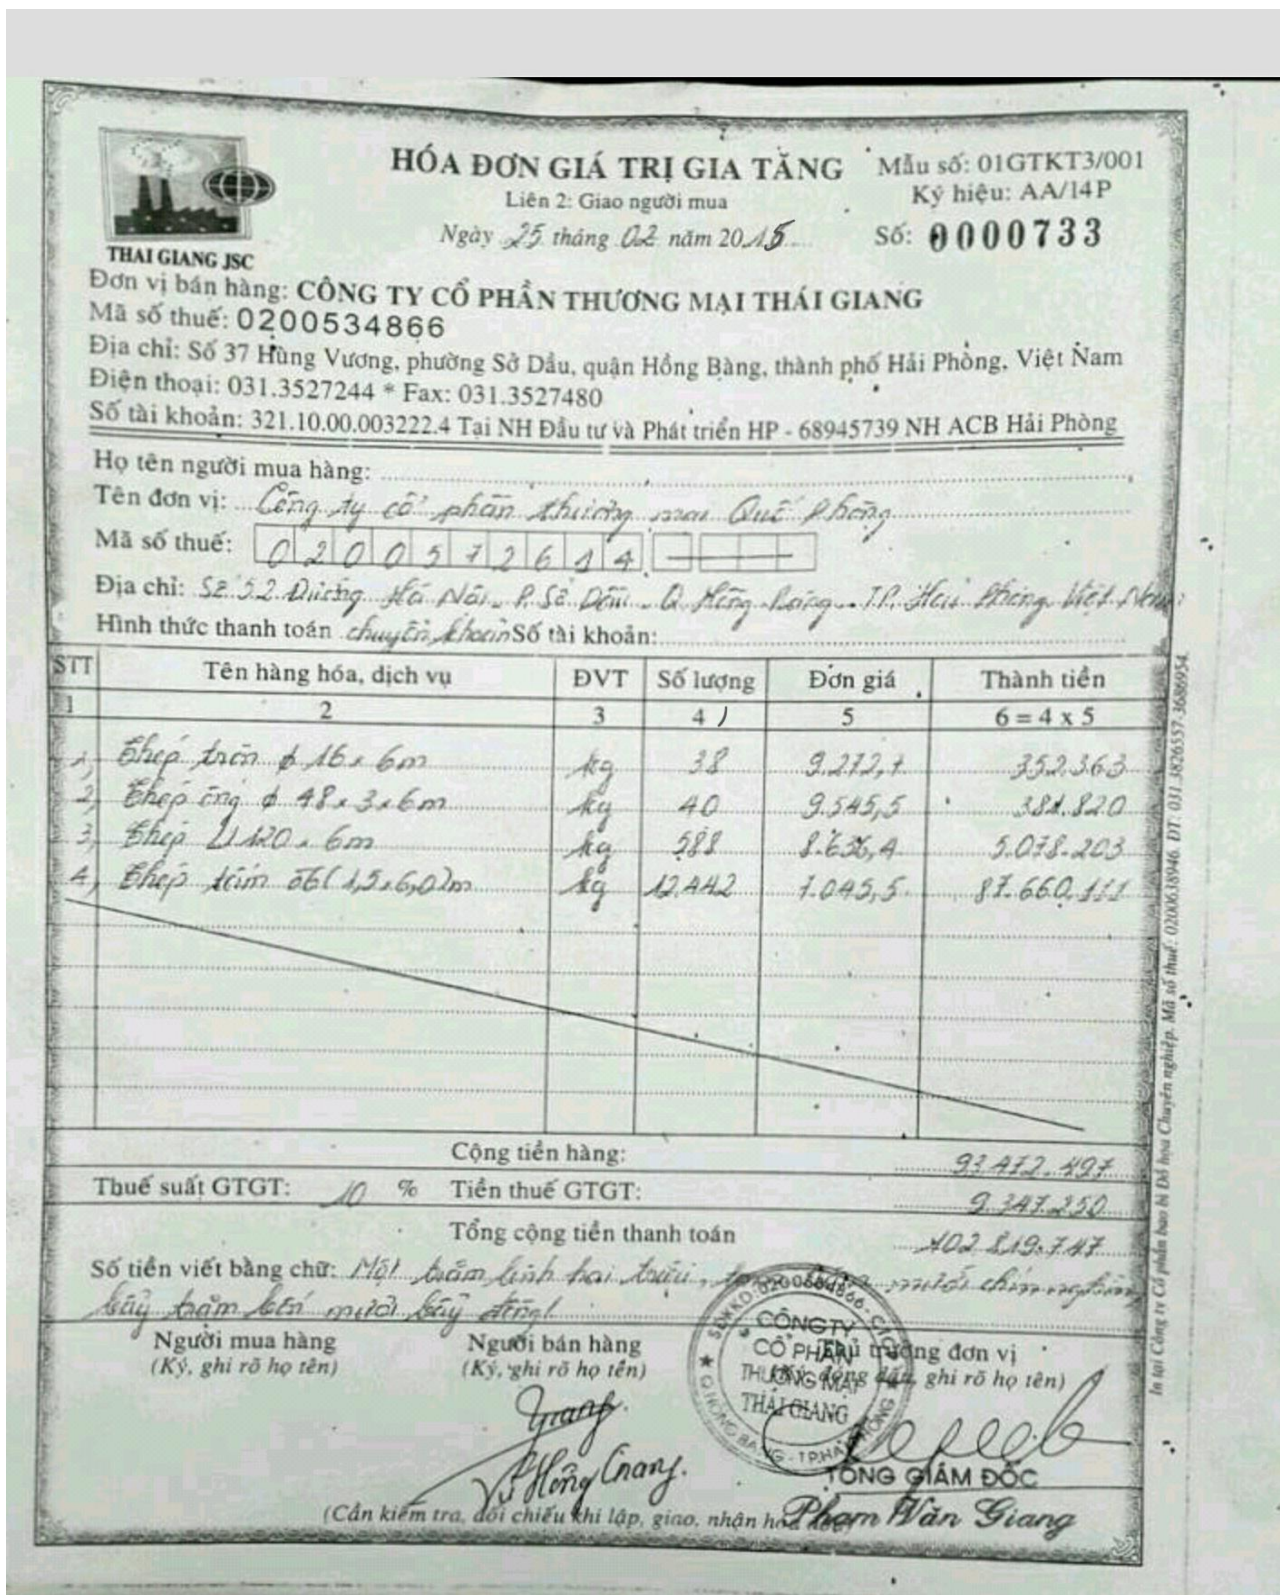 HÓA ĐƠN GIÁ TRỊ GIA TĂNG
Mẫu số: 01GTKT3/001
Liên 2: Giao người mua
Ký hiệu: AA/14P
Ngày 25 tháng 02 năm 2015
Số: 0000733
THAI GIANG JSC
Đơn vị bán hàng: CÔNG TY CỔ PHẦN THƯƠNG MẠI THÁI GIANG
Mã số thuế: 0200534866
Địa chỉ: Số 37 Hùng Vương, phường Sở Dầu, quận Hồng Bàng, thành phố Hải Phòng, Việt Nam
Điện thoại: 031.3527244 * Fax: 031.3527480
Số tài khoản: 321.10.00.003222.4 Tại NH Đầu tư và Phát triển HP - 68945739 NH ACB Hải Phòng
Họ tên người mua hàng:
Tên đơn vị: Công ty cổ phần thương mại Quế Phòng
Mã số thuế: 0200572614
Địa chỉ: Số 52 Đường Hà Nội - P. Sở Dầu - Q Hồng Bàng - TP. Hải Phòng Việt Nam
Hình thức thanh toán chuyển khoản Số tài khoản:
STT Tên hàng hóa, dịch vụ ĐVT Số lượng Đơn giá Thành tiền
1 2 3 4 5 6 = 4 x 5
1, Thép tròn ϕ 16 x 6m kg 38 9.272,7 352.363
2, Thép ống ϕ 48 x 3 x 6m kg 40 9.545,5 381.820
3, Thép U 120 x 6m kg 588 8.636,4 5.078.203
4, Thép tấm δ6(1,5x6,0)m kg 12.442 7.045,5 87.660.111
Cộng tiền hàng: 93.472.497
Thuế suất GTGT: 10 % Tiền thuế GTGT: 9.347.250
Tổng cộng tiền thanh toán 102.819.747
Số tiền viết bằng chữ: Một trăm linh hai triệu, tám trăm mười chín nghìn
bảy trăm bốn mười bảy đồng/
Người mua hàng Người bán hàng Thủ trưởng đơn vị
(Ký, ghi rõ họ tên) (Ký, ghi rõ họ tên) (Ký, đóng dấu, ghi rõ họ tên)
CÔNG TY
CỔ PHẦN
THƯƠNG MẠI
THÁI GIANG
Q.HỒNG BÀNG - TP.HẢI PHÒNG
TỔNG GIÁM ĐỐC
(Cần kiểm tra, đối chiếu khi lập, giao, nhận hóa đơn)
Phạm Văn Giang
In tại Công ty Cổ phần bao bì Đồ họa Chuyên nghiệp. Mã số thuế: 0200638946. ĐT: 031.3826557-3686954